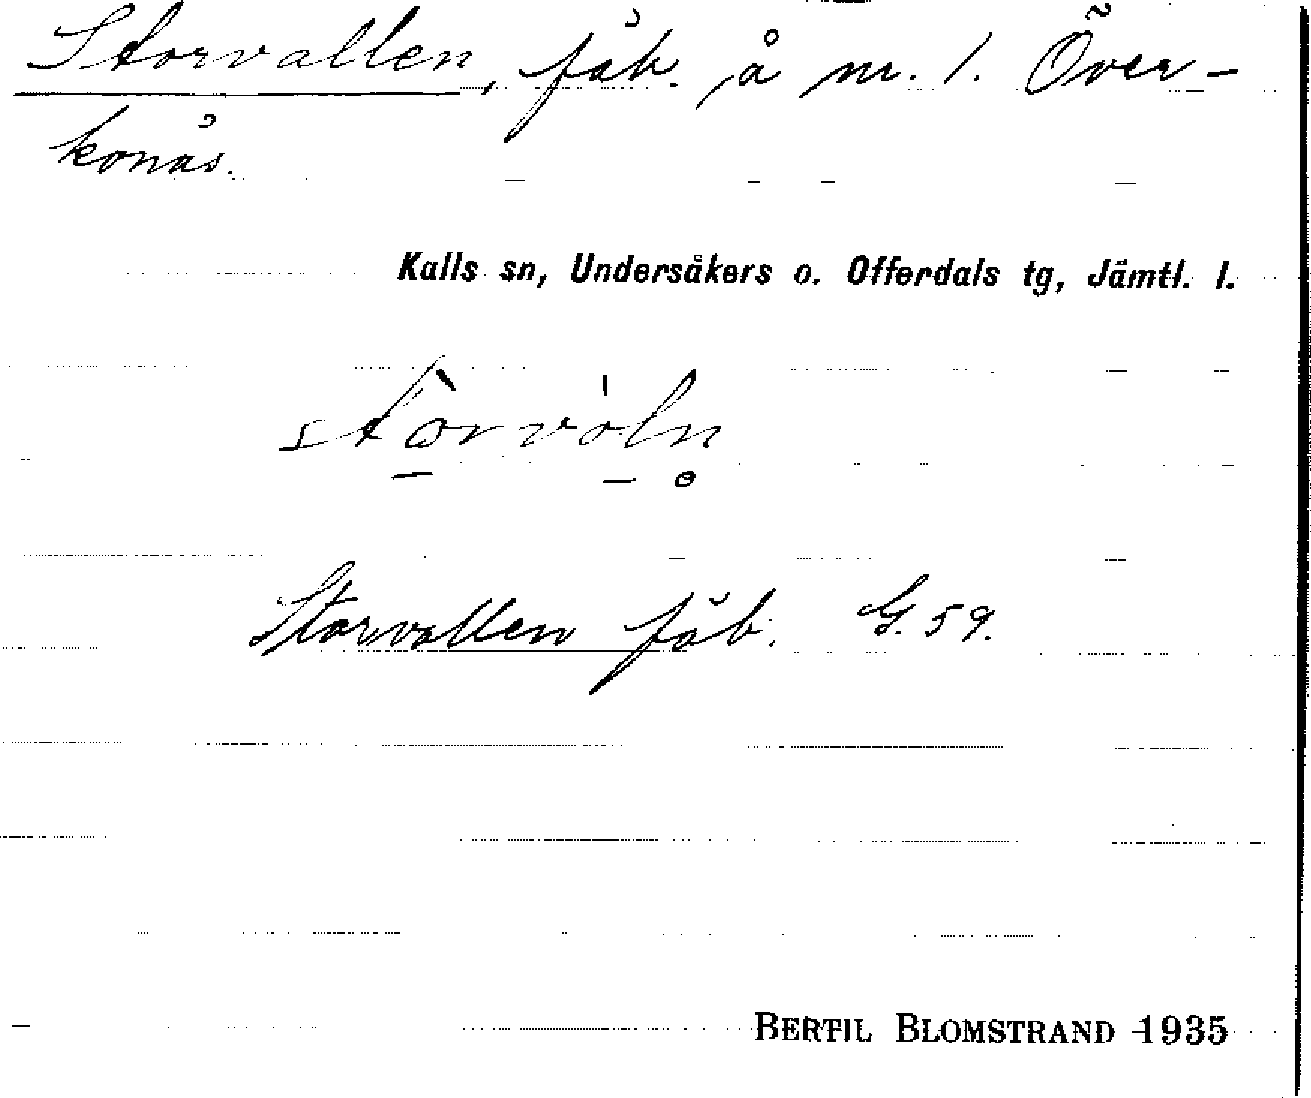 Storvallen, fäb. å nr. 1. Över-
konäs.
Kalls sn, Undersåkers o. Offerdals tg, Jämtl. l.
Storvallen fäb. G. 59.
BERTIL BLOMSTRAND 1935